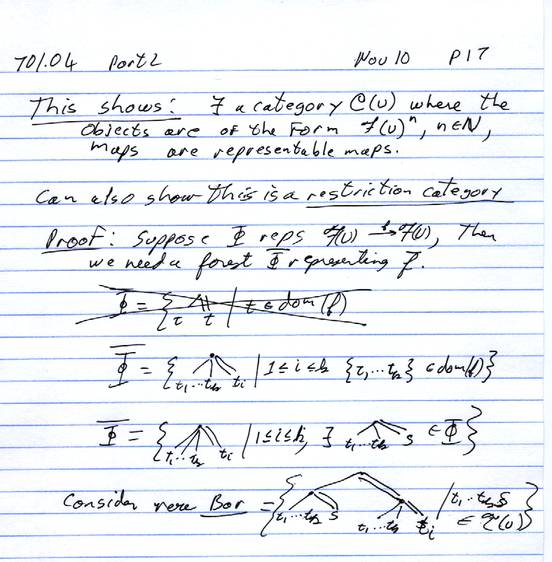 701.04 Part 2 Nov 10 P17
This shows: ∃ a category C(U) where the
objects are of the form F(U)ⁿ, n∈N,
maps are representable maps.
Can also show this is a restriction category
Proof: Suppose Φ reps F(U) →f F(U), then
we need a forest Φ̄ representing f̄.
Φ̄ = { t t | t ∈ dom(f)
Φ̄ = { t₁...tₖ tᵢ | 1≤i≤k {t₁...tₖ} ∈ dom(f)}
Φ̄ = { t₁...tₖ tᵢ | 1≤i≤k, ∃ t₁...tₖ s ∈ Φ}
Consider here Bar = { t₁...tₖ s t₁...tₖ tᵢ | t₁..tₖ s ∈ T(U) }